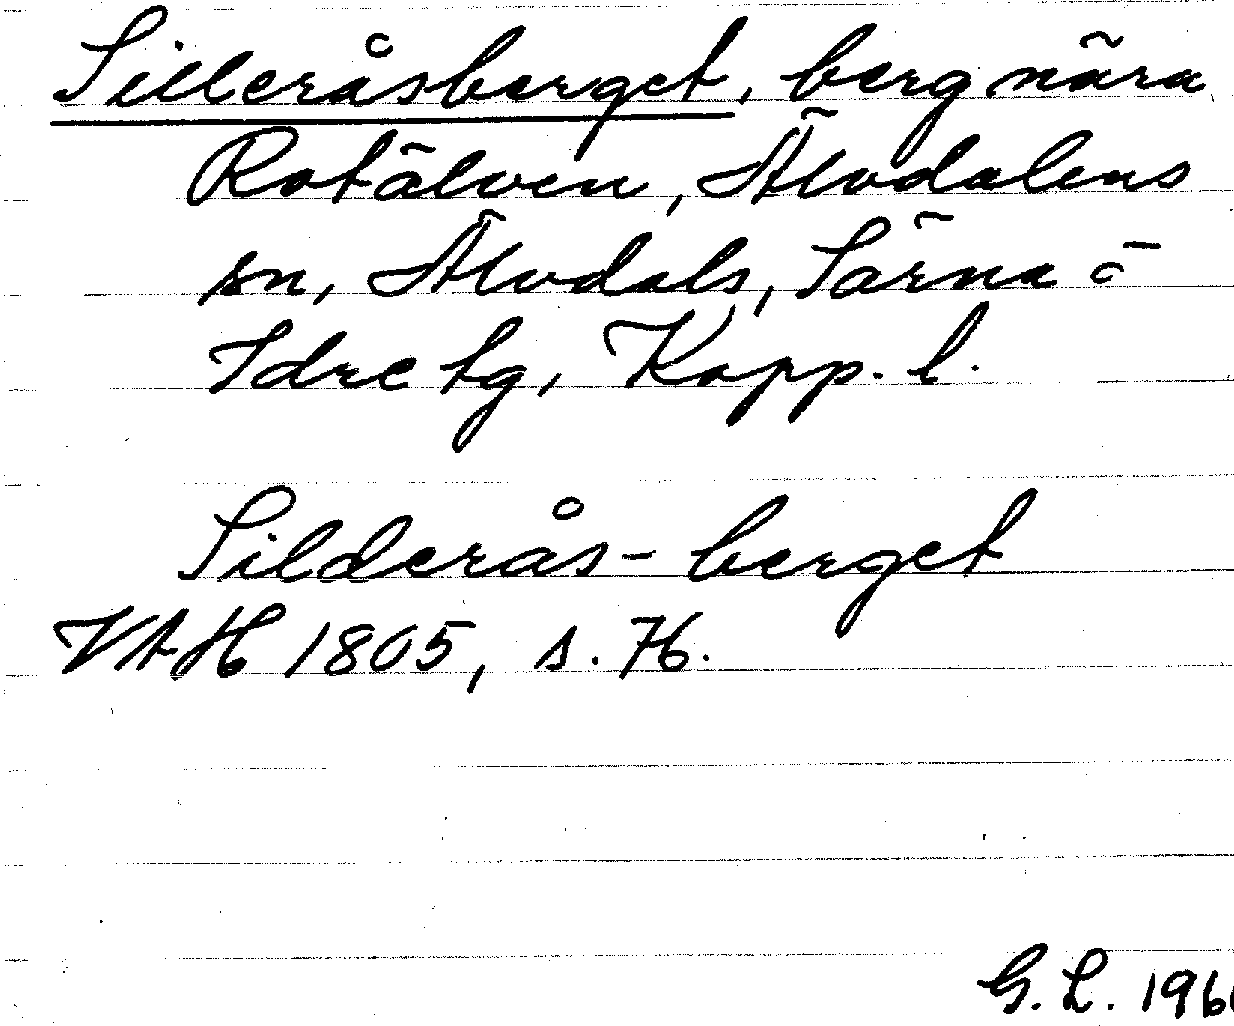 Silleråsberget, berg nära
Rotälven, Älvdalens
sn, Älvdals, Särna ö
Idre tg, Kopp. l.
Silderås-berget
VAH 1805, s. 76.
G. L.